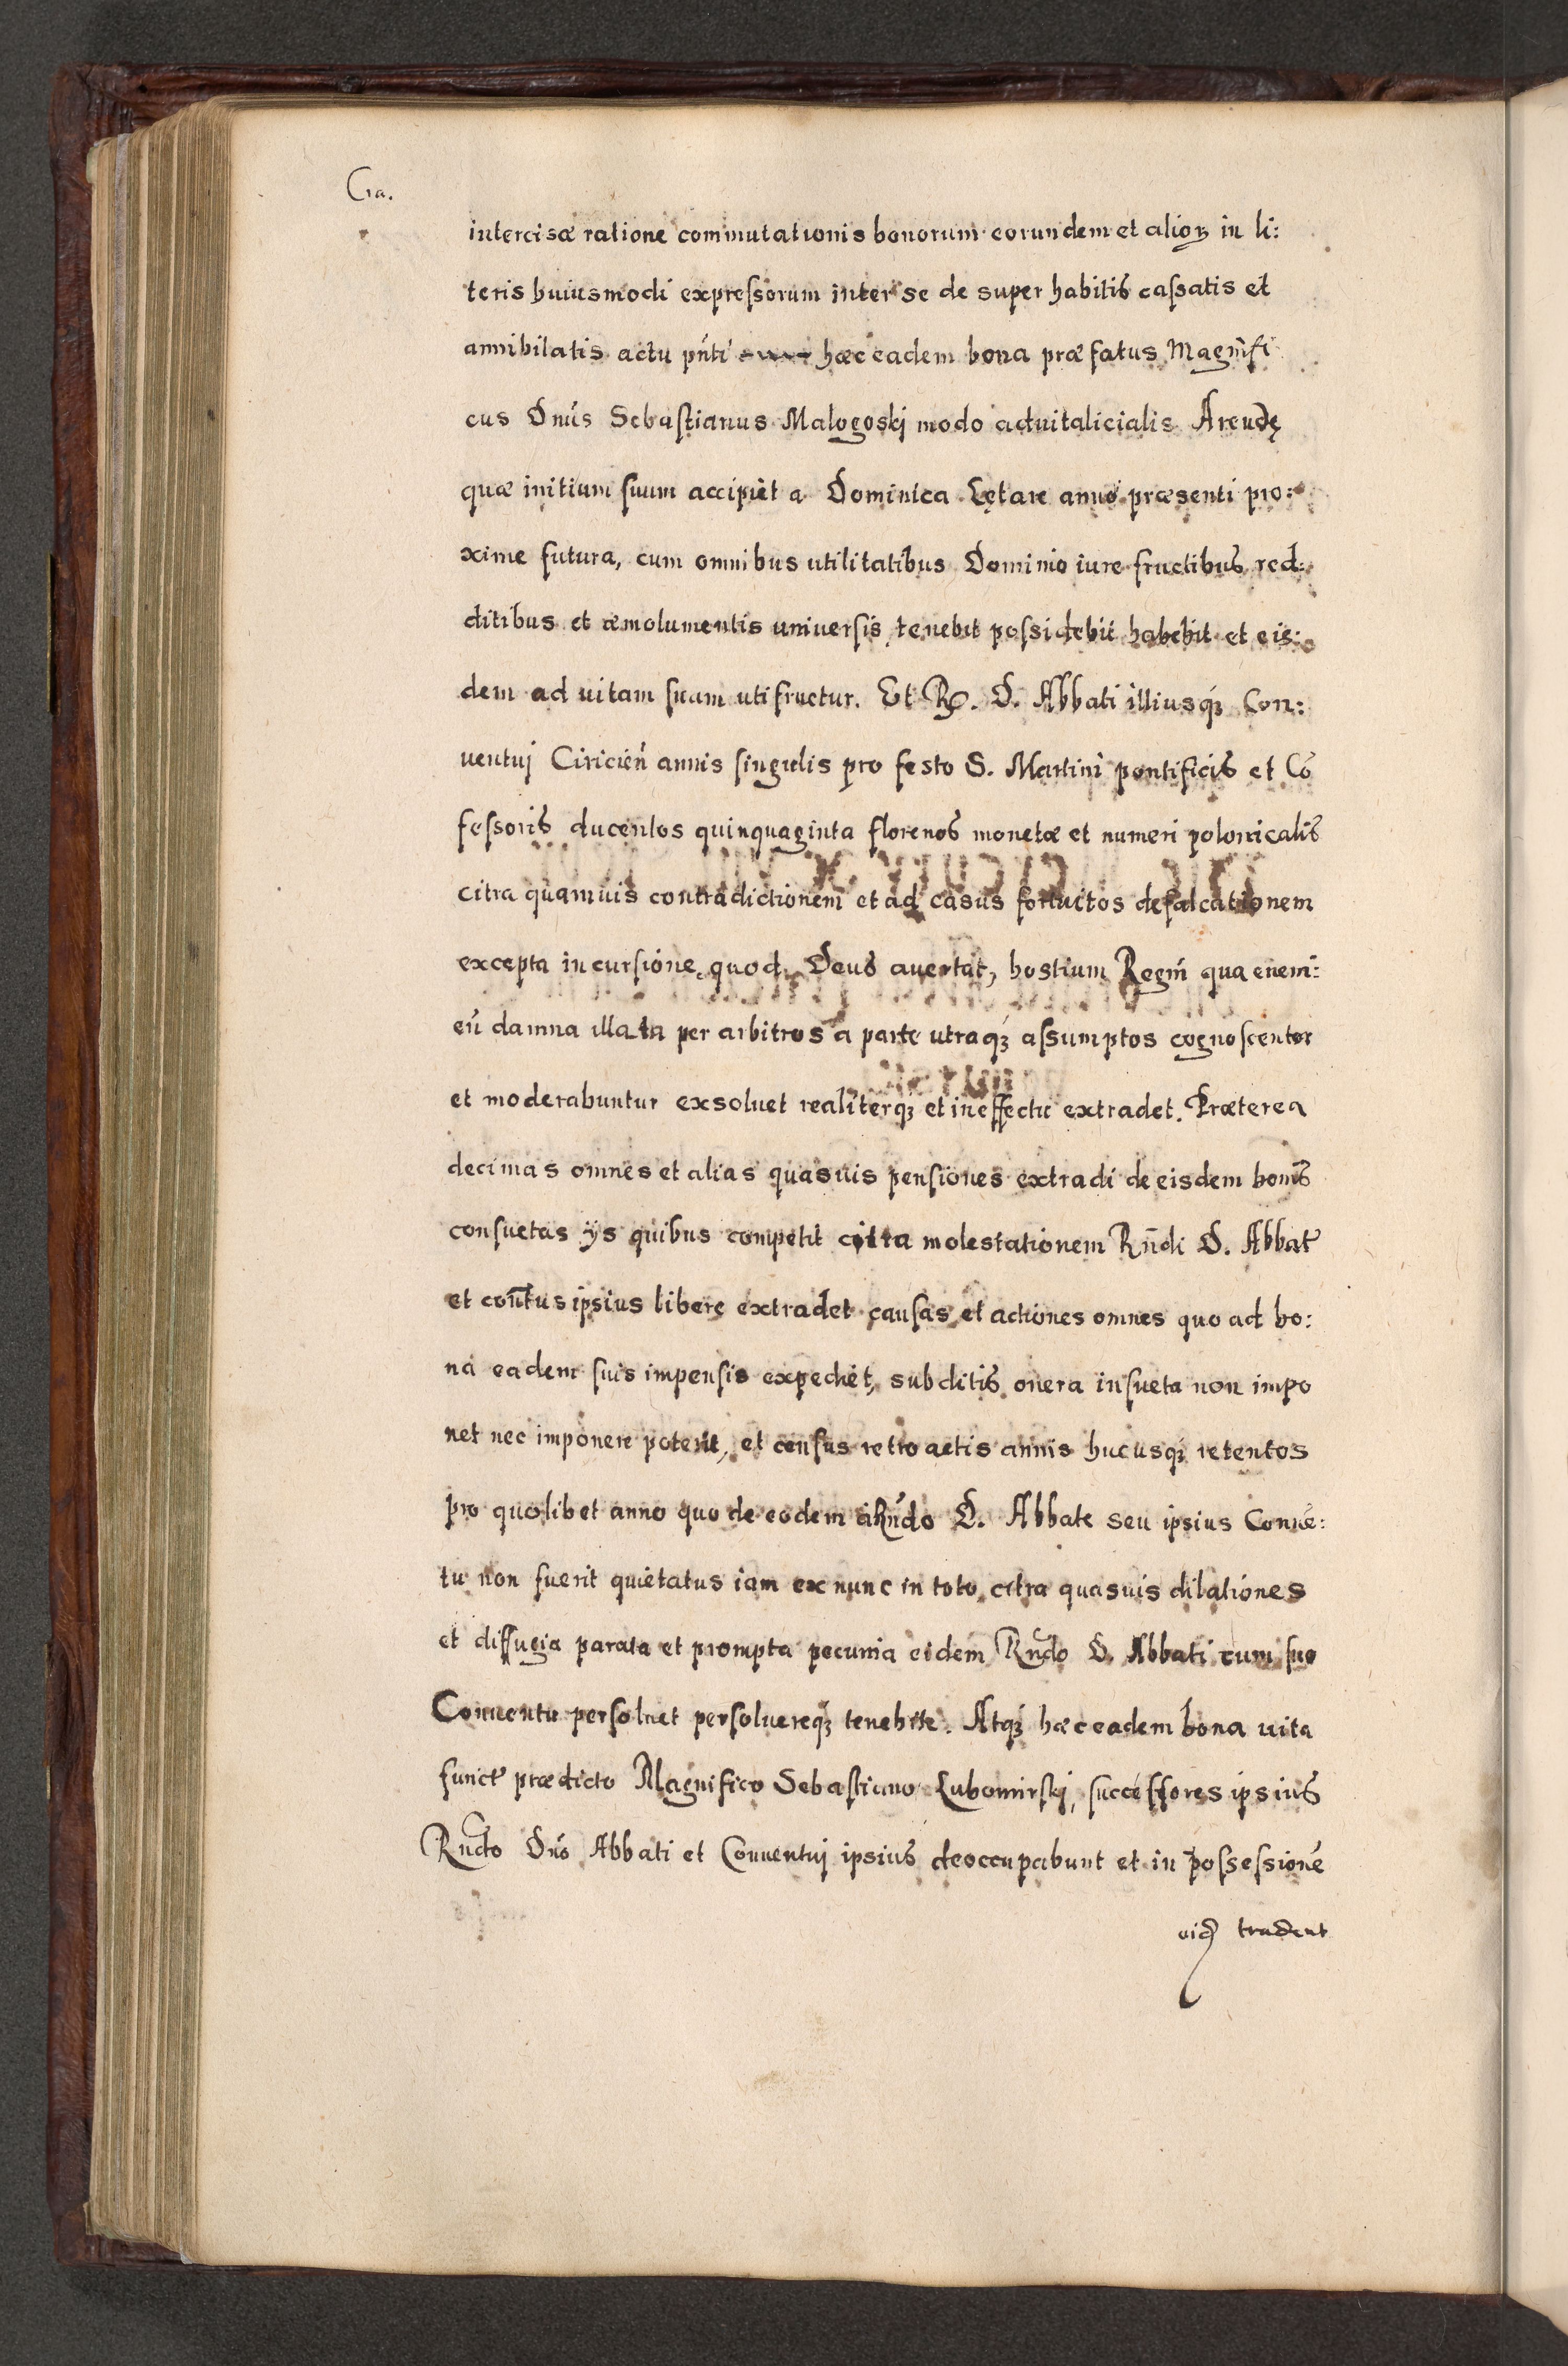 Cra.
intercisæ ratione commutationis bonorum eorundem et alioꝝ in li:
teris huiusmodi expressorum inter se de super habitis cassatis et
annihilatis actu pn̄ti hæc eadem bona præfatus Magnifi
cus Dnūs Sebastianus Malogoskj modo aduitalicialis Arendę
quæ initium suum accipiet a Dominica Lętare anno præsenti pro:
xime futura, cum omnibus utilitatibus Dominio iure fructibus red:
ditibus et æmolumentis universis tenebit possidebit habebit et eis:
dem ad uitam suam utifruetur. Et R. D. Abbati illiusqȝ Con:
uentuj Ciricien̄ annis singulis pro festo S. Martini pontificis et Cō
fessoris ducentos quinquaginta florenos monetæ et numeri polonicalis
citra quamuis contradictionem et ad casus fortuitos defalcationem
excepta incursione quod Deus auertat, hostium Regnī qua eneni:
eñ damna illata per arbitros a parte utraqȝ assumptos cognoscentor
et moderabuntur exsoluet realiterqȝ et in effectu extradet. Præterea
decimas omnes et alias quasuis pensiones extradi de eisdem bonis
consuetas ijs quibus competit citra molestationem Rn̄di D. Abbat
et con̄tus ipsius libere extradet causas et actiones omnes quo ad bo:
na eadem suis impensis expediet, subditis onera insueta non impo
net nec imponere poterit, et census retro actis annis hucusqȝ retentos
pro quolibet anno quo de eodem a Rn̄do D. Abbate seu ipsius Conuē:
tu non fuerit quietatus iam ex nunc in toto citra quasuis dilationes
et diffugia parata et prompta pecunia eidem Rndo D. Abbati cum suo
Conuentu persoluet persoluereqȝ tenebite. Atqȝ hæc eadem bona uita
funct prædicto Magnifico Sebastiano Lubomirskj, successores ipsius
Rndo Dn̄o Abbati et Conuentuj ipsius deoccupabunt et in possessionē
eid tradent